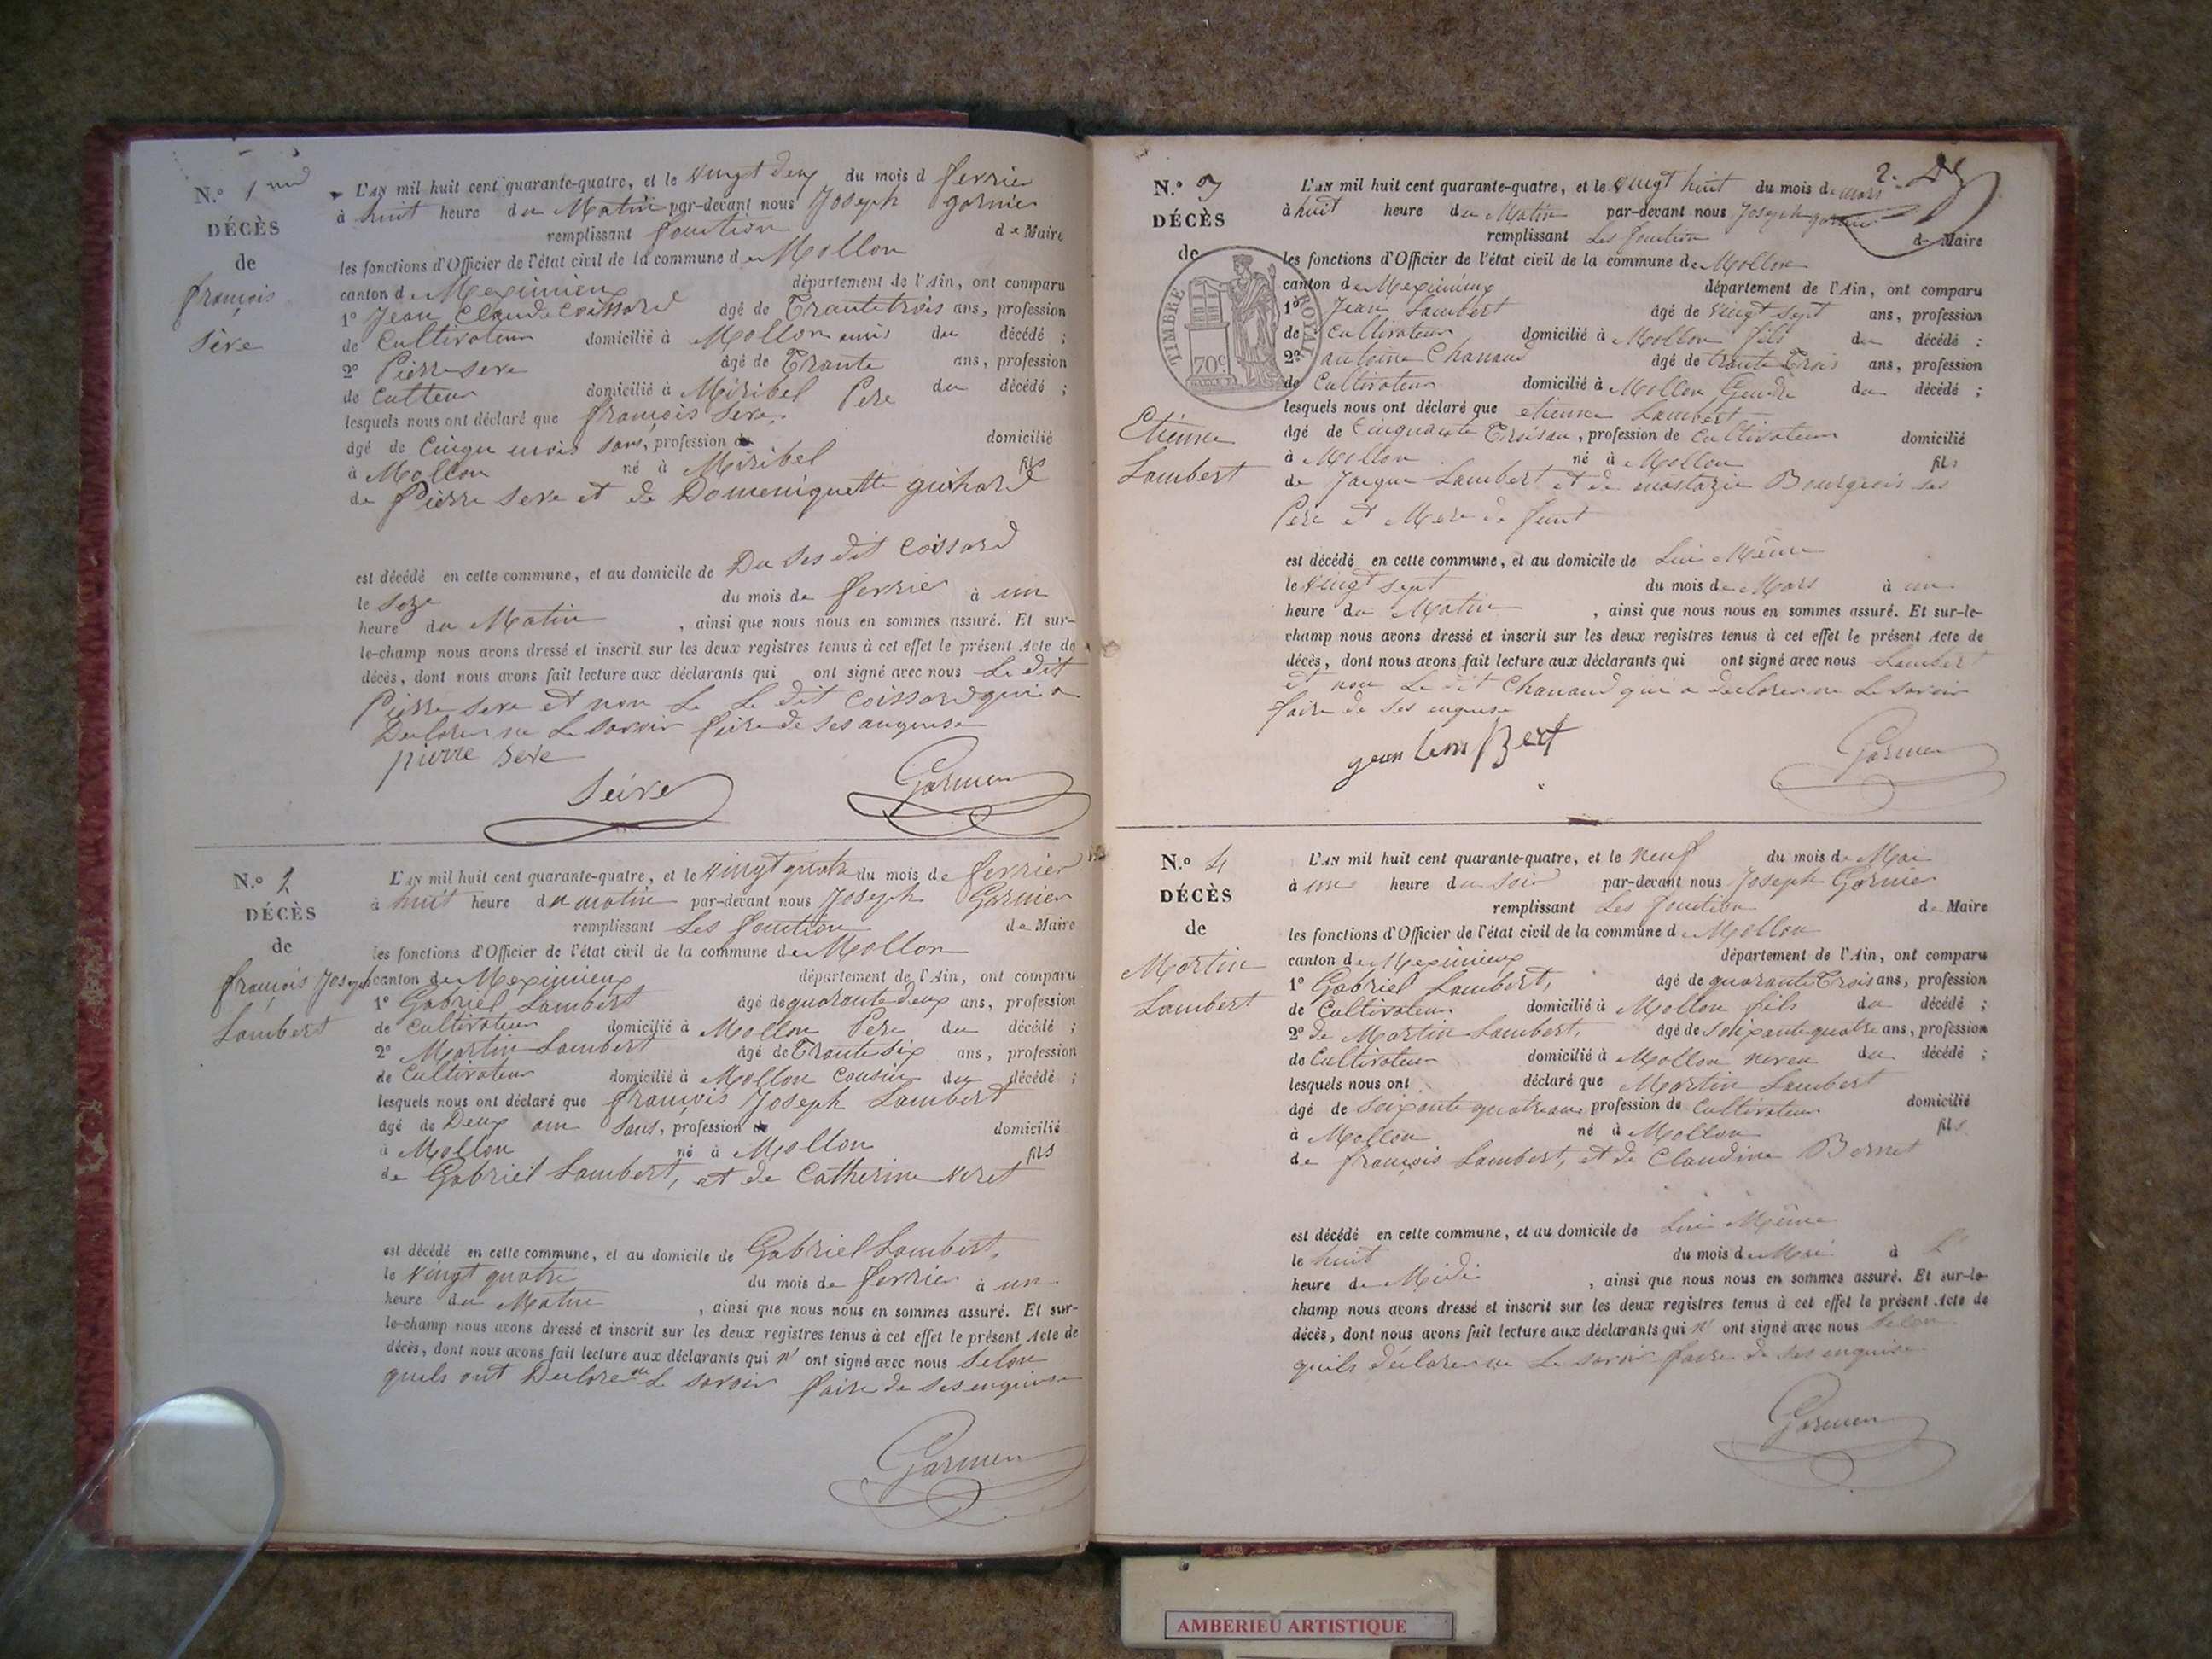 N.° 1
DÉCÈS
de
françois
Sève
L'AN mil huit cent quarante-quatre, et le vingt deux du mois d fevrier
à huit heure du Matin par-devant nous Joseph garnier
remplissant fonction de Maire
les fonctions d'Officier de l'état civil de la commune de Mollon
canton de Meximieux département de l'Ain, ont comparu
1° Jean Claude Coissard âgé de Trante trois ans, profession
de Cultivateur domicilié à Mollon amis du décédé ;
2° Pierre seve âgé de Trante ans, profession
de Cutteur domicilié à Miribel Pere du décédé ;
lesquels nous ont déclaré que françois Seve.
âgé de Cinqu mois sans, profession de domicilié
à Mollon né à Miribel fils
de Pierre Seve et de Domeniquette guichard
est décédé en cette commune, et au domicile de Du Ses dit Coissard
le seze du mois de fevrier à un
heure du Matin , ainsi que nous nous en sommes assuré. Et sur-
le-champ nous avons dressé et inscrit sur les deux registres tenus à cet effet le présent Acte de
décès, dont nous avons fait lecture aux déclarants qui ont signé avec nous Le dit
Pierre Seve et non Le Le dit Coissard qui a
Declarer ne Le savoir faire de ses anquise
pierre seve
Seive Garnier
N.° 2
DÉCÈS
de
françois Joseph
Lambert
L'AN mil huit cent quarante-quatre, et le vingt quatre du mois de fevrier
à huit heure du matin par-devant nous Joseph Garnier
remplissant Les fonction de Maire
les fonctions d'Officier de l'état civil de la commune de Mollon
canton de Meximieux département de l'Ain, ont comparu
1° Gabriel Lambert âgé de quarante deux ans, profession
de Cultivateur domicilié à Mollon Pere du décédé ;
2° Martin Lambert âgé de Trante six ans, profession
de Cultivateur domicilié à Mollon Cousin du décédé ;
lesquels nous ont déclaré que françois Joseph Lambert
âgé de Deux ans sans, profession de domicilié
à Mollon né à Mollon fils
de Gabriel Lambert, et de Catherine Veret
est décédé en cette commune, et au domicile de Gabriel Lambert,
le vingt quatre du mois de fevrier à un
heure du Matin , ainsi que nous nous en sommes assuré. Et sur-
le-champ nous avons dressé et inscrit sur les deux registres tenus à cet effet le présent Acte de
décès, dont nous avons fait lecture aux déclarants qui n' ont signé avec nous Selon
quils ont Declore ne L savoir faire de ses enquise
Garnier
2.
N.° 3
DÉCÈS
de
TIMBRE ROYAL
70c
Etienne
Lambert
L'AN mil huit cent quarante-quatre, et le vingt huit du mois de mars
à huit heure du Matin par-devant nous Joseph garnier
remplissant Les fonction de Maire
les fonctions d'Officier de l'état civil de la commune de Mollon
canton de Meximieux département de l'Ain, ont comparu
1° Jean Lambert âgé de vingt sept ans, profession
de Cultivateur domicilié à Mollon fils du décédé ;
2° antoine Chanaud âgé de trante Trois ans, profession
de Cultivateur domicilié à Mollon Gendre du décédé ;
lesquels nous ont déclaré que etienne Lambert
âgé de Cinquante Trois an, profession de Cultivateur domicilié
à Mollon né à Mollon fils
de Jacque Lambert et de anastazie Bourgeois ses
Pere et Mere de funt
est décédé en cette commune, et au domicile de Lui Même
le vingt sept du mois de Mars à un
heure du Matin , ainsi que nous nous en sommes assuré. Et sur-le-
champ nous avons dressé et inscrit sur les deux registres tenus à cet effet le présent Acte de
décès, dont nous avons fait lecture aux déclarants qui ont signé avec nous Lambert
et non Le dit Chanaud qui a declorer ne Le savoir
faire de ses enquise
jean lam Bert
Garnier
N.° 4
DÉCÈS
de
Martin
Lambert
L'AN mil huit cent quarante-quatre, et le neuf du mois de Mai
à une heure du soir par-devant nous Joseph Garnier
remplissant Les fonction de Maire
les fonctions d'Officier de l'état civil de la commune de Mollon
canton de Meximieux département de l'Ain, ont comparu
1° Gabriel Lambert, âgé de quarante Trois ans, profession
de Cultivateur domicilié à Mollon fils du décédé ;
2° de Martin Lambert, âgé de soixante quatre ans, profession
de Cultivateur domicilié à Mollon neveu du décédé ;
lesquels nous ont déclaré que Martin Lambert
âgé de soixante quatre ans profession de Cultivateur domicilié
à Mollon né à Mollon fils
de françois Lambert, et de Claudine Bernet
est décédé en cette commune, et au domicile de Lui Même
le huit du mois de Mai à
heure de Midi , ainsi que nous nous en sommes assuré. Et sur-le-
champ nous avons dressé et inscrit sur les deux registres tenus à cet effet le présent Acte de
décès, dont nous avons fait lecture aux déclarants qui n' ont signé avec nous Selon
quils déclorer ne Le savoir faire de ses enquise
Garnier
AMBERIEU ARTISTIQUE